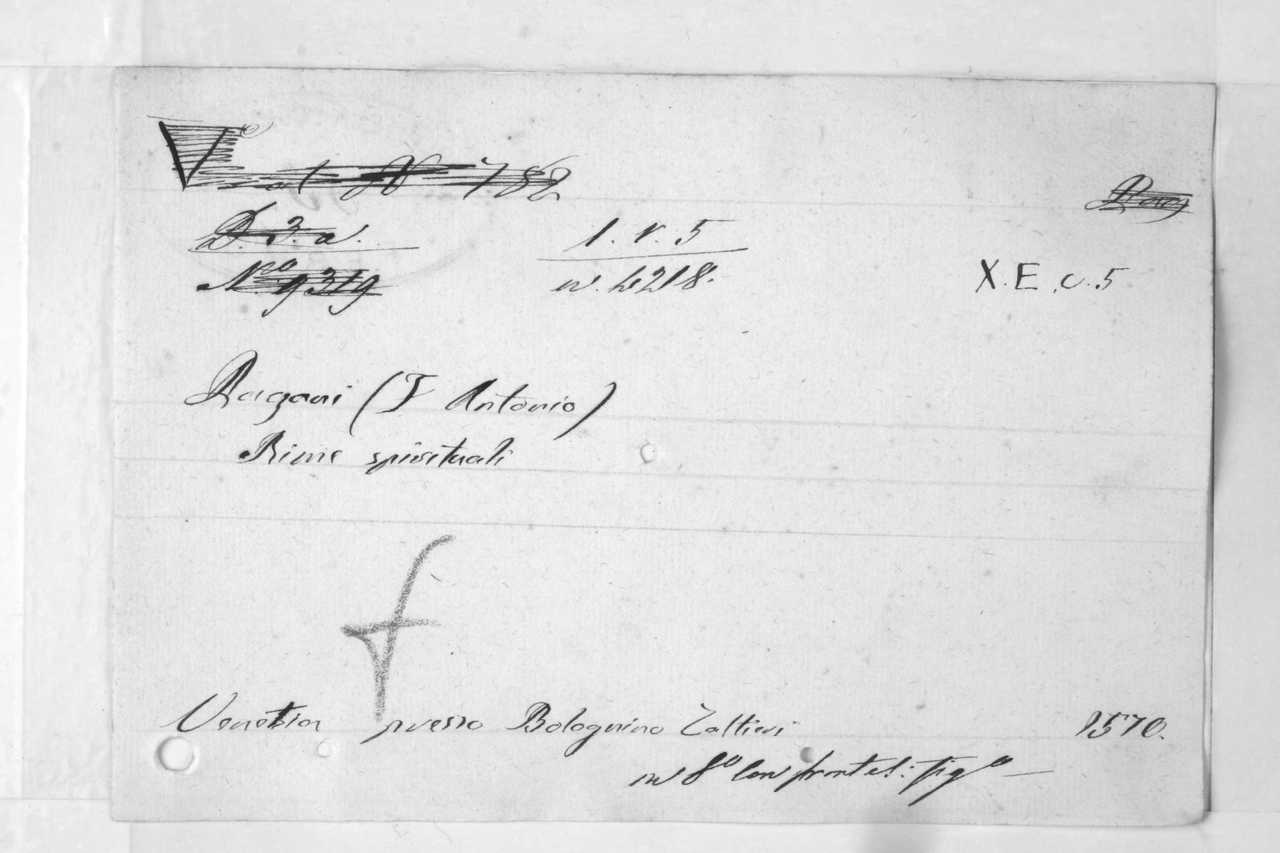 N 782
D. 3. a.
1. v. 5
N.ro 9319
n. 4218.
X. E. c. 5
Pagani (F Antonio)
Rime spirituali
f
Venetia presso Bolognino Zaltieri 1570.
in 8º con frontes: figº